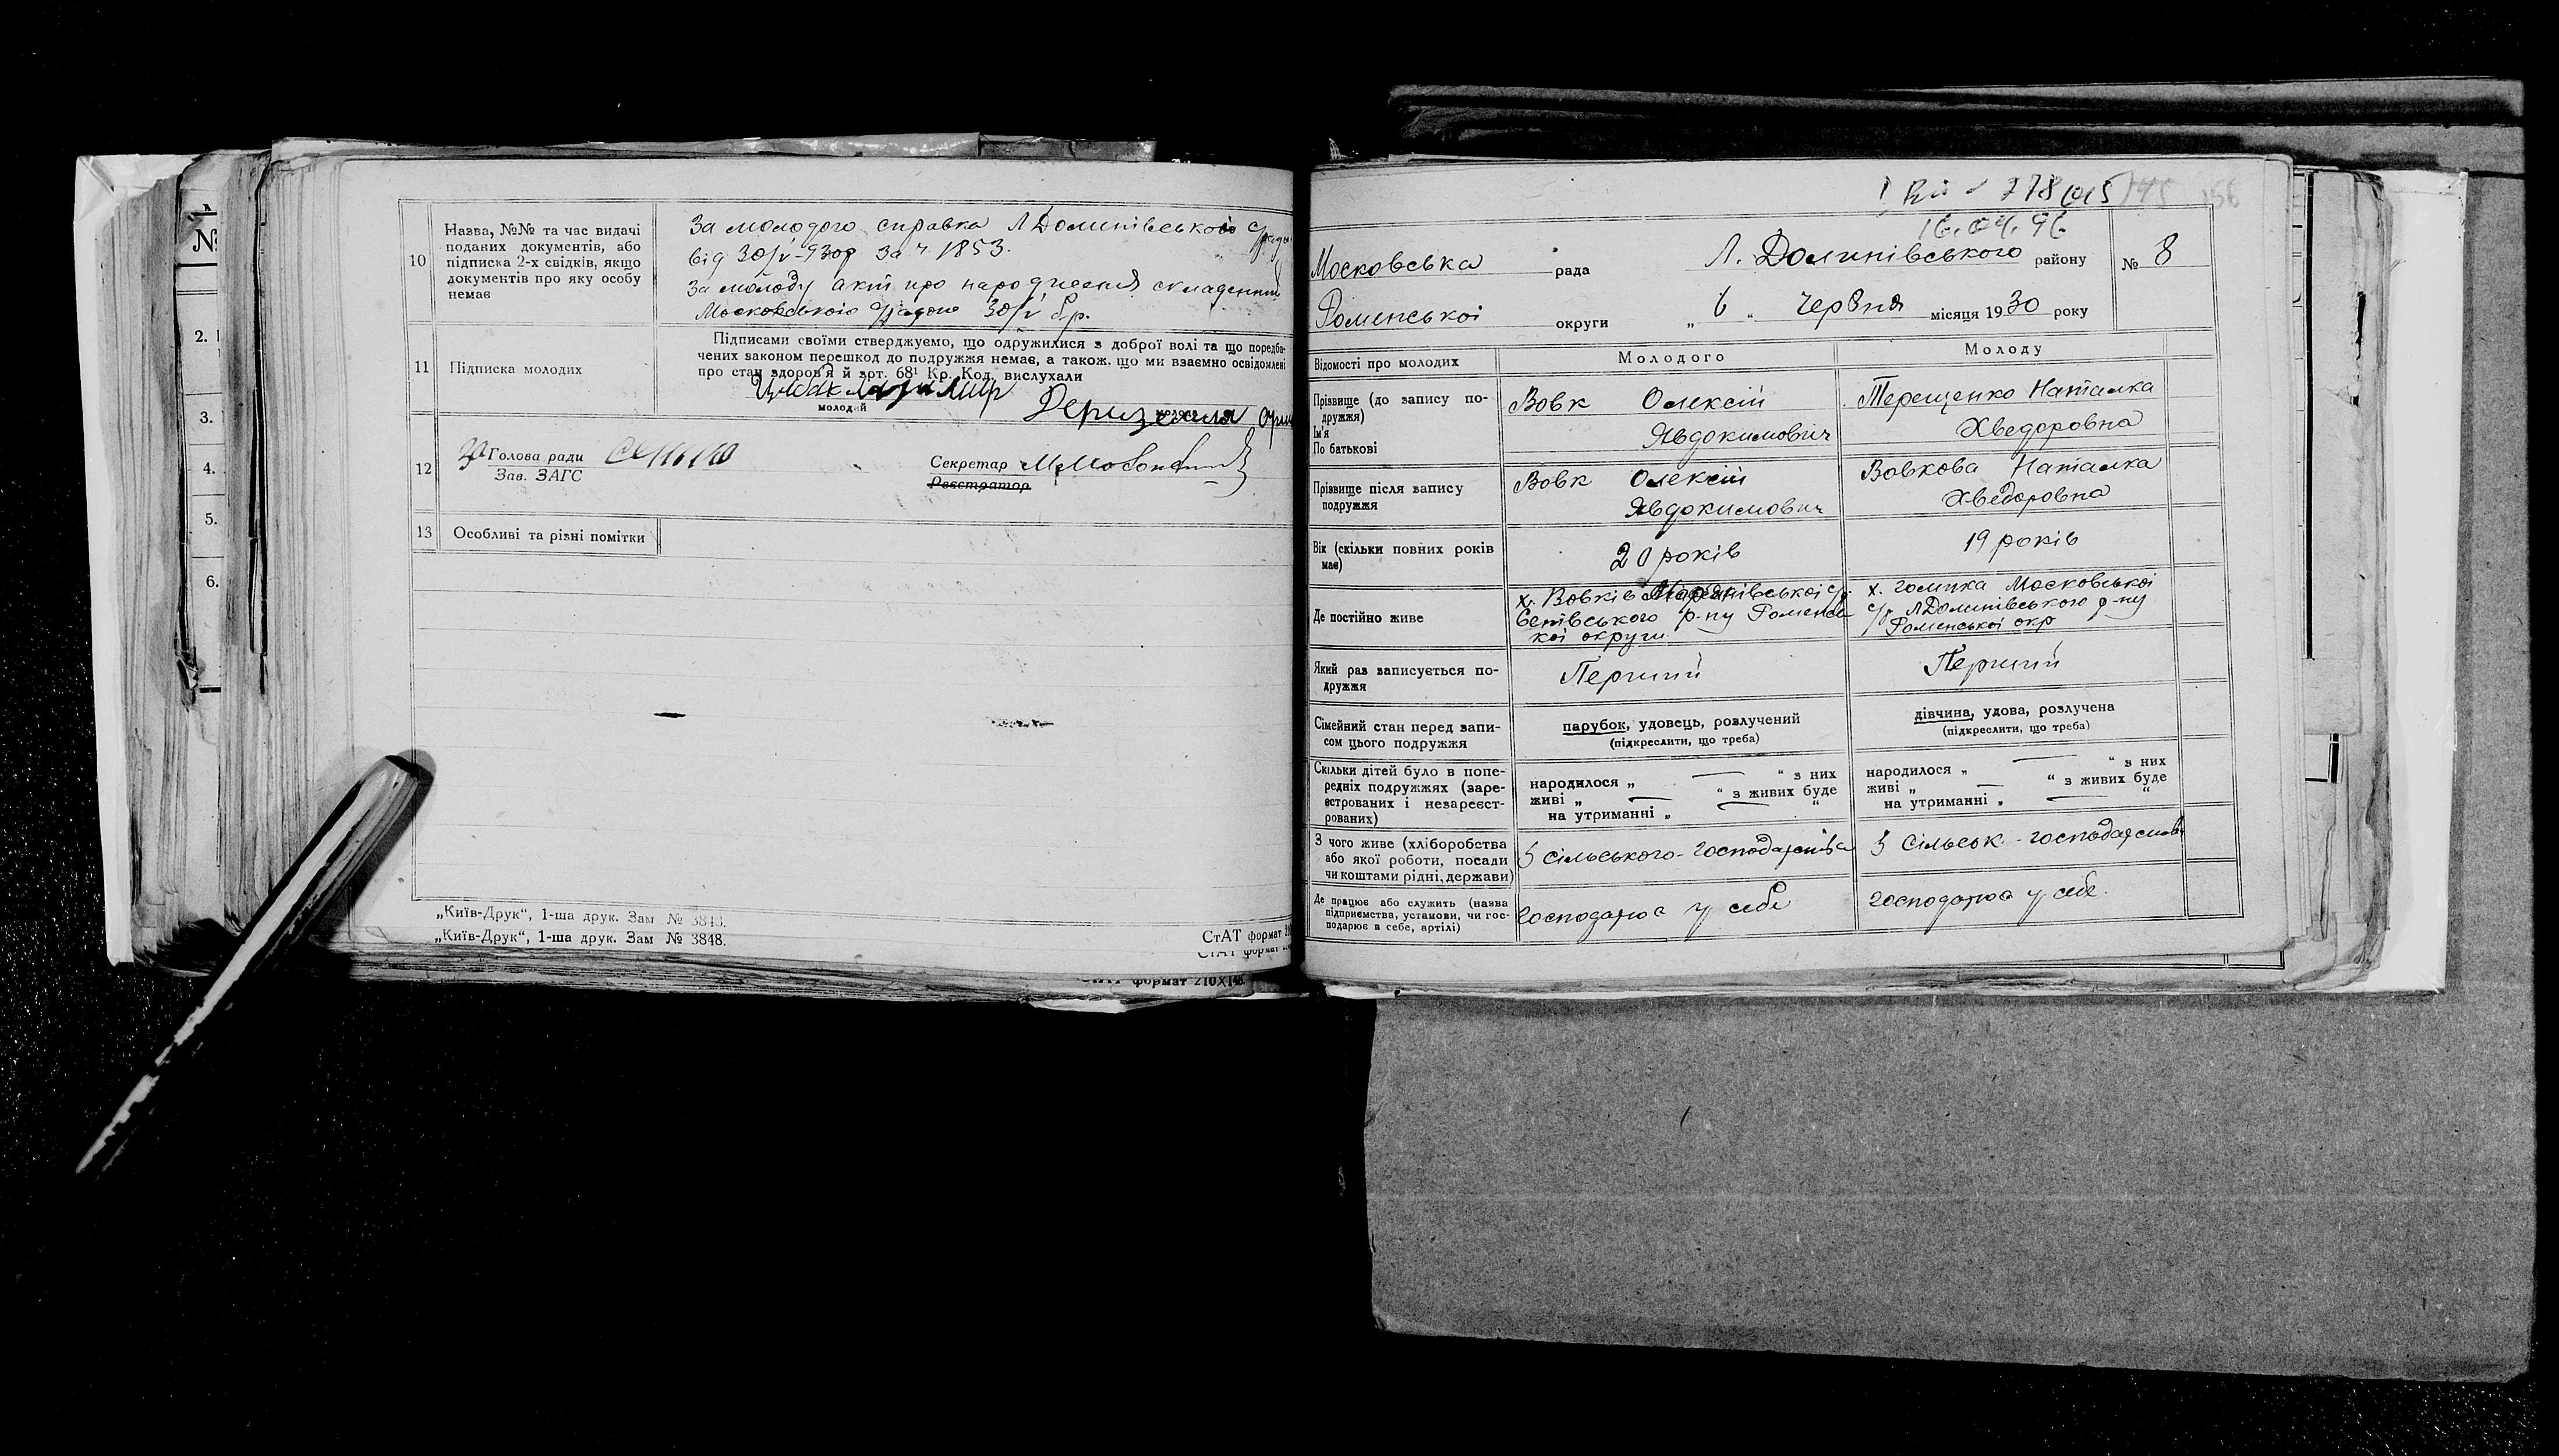 10
Назва, №№ та час видачі
поданих документів, або
підписка 2-х свідків, якщо
документів про яку особу
немає
За молодого справка Л Долинівської с/ради
від 30/V-930р за ч 1853.
За молоду акт про народження складений
Московською с/радою 30/V б/р.
11
Підписка молодих
Підписами своїми стверджуємо, що одружилися з доброї волі та що передба-
чених законом перешкод до подружжя немає, а також, що ми взаємно освідомлені
про стан здоров'я й арт. 68¹ Кр. Код. вислухали
молодий
молода
12
За Голова ради
Зав. ЗАГС
Секретар
Реєстратор
13
Особливі та різні помітки
„Київ-Друк“, 1-ша друк. Зам № 3848.
„Київ-Друк“, 1-ша друк. Зам № 3848.
СтАТ формат
формат 210Х148
№
2.
3.
4.
5.
6.
16.04.96
Московська рада Л. Долинівського району № 8
Роменської округи „ 6 “ Червня місяця 1930 року
Відомості про молодих
Молодого
Молоду
Прізвище (до запису по-
дружжя)
Ім'я
По батькові
Вовк Олексій
Явдокимович
Терещенко Наталка
Хведоровна
Прізвище після запису
подружжя
Вовк Олексій
Явдокимович
Вовкова Наталка
Хведоровна
Вік (скільки повних років
має)
20 років
19 років
Де постійно живе
х. Вовків с/р.
р-ну Роменсь
кої округи
х. Голинка Московської
с/р ЛДолинівського р-ну
Роменської окр
Який раз записується по-
дружжя
Перший
Перший
Сімейний стан перед запи-
сом цього подружжя
парубок, удовець, розлучений
(підкреслити, що треба)
дівчина, удова, розлучена
(підкреслити, що треба)
Скільки дітей було в попе-
редніх подружжях (заре-
єстрованих і незареєст-
рованих)
народилося „ — “ з них
живі „ — “ з живих буде
на утриманні „ — “
народилося „ — “ з них
живі „ — “ з живих буде
на утриманні „ — “
З чого живе (хліборобства
або якої роботи, посади
чи коштами рідні, держави)
З сільського-господарства
З Сільськ-господарства
Де працює або служить (назва
підприємства, установи, чи гос-
подарює в себе, артілі)
Господарює у себе
Господарює у себе.